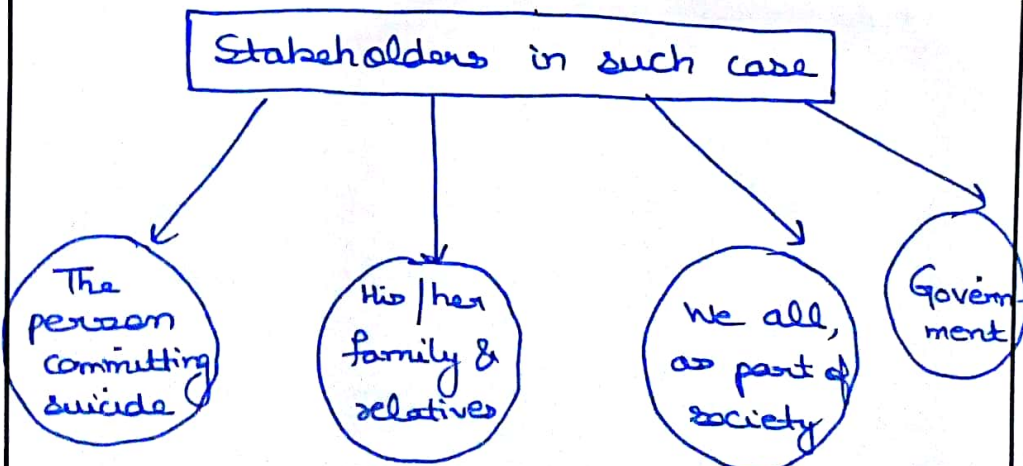 Stakeholders in such case
The
person
committing
suicide
His/her
family &
relatives
We all,
as part of
society
Govern-
ment